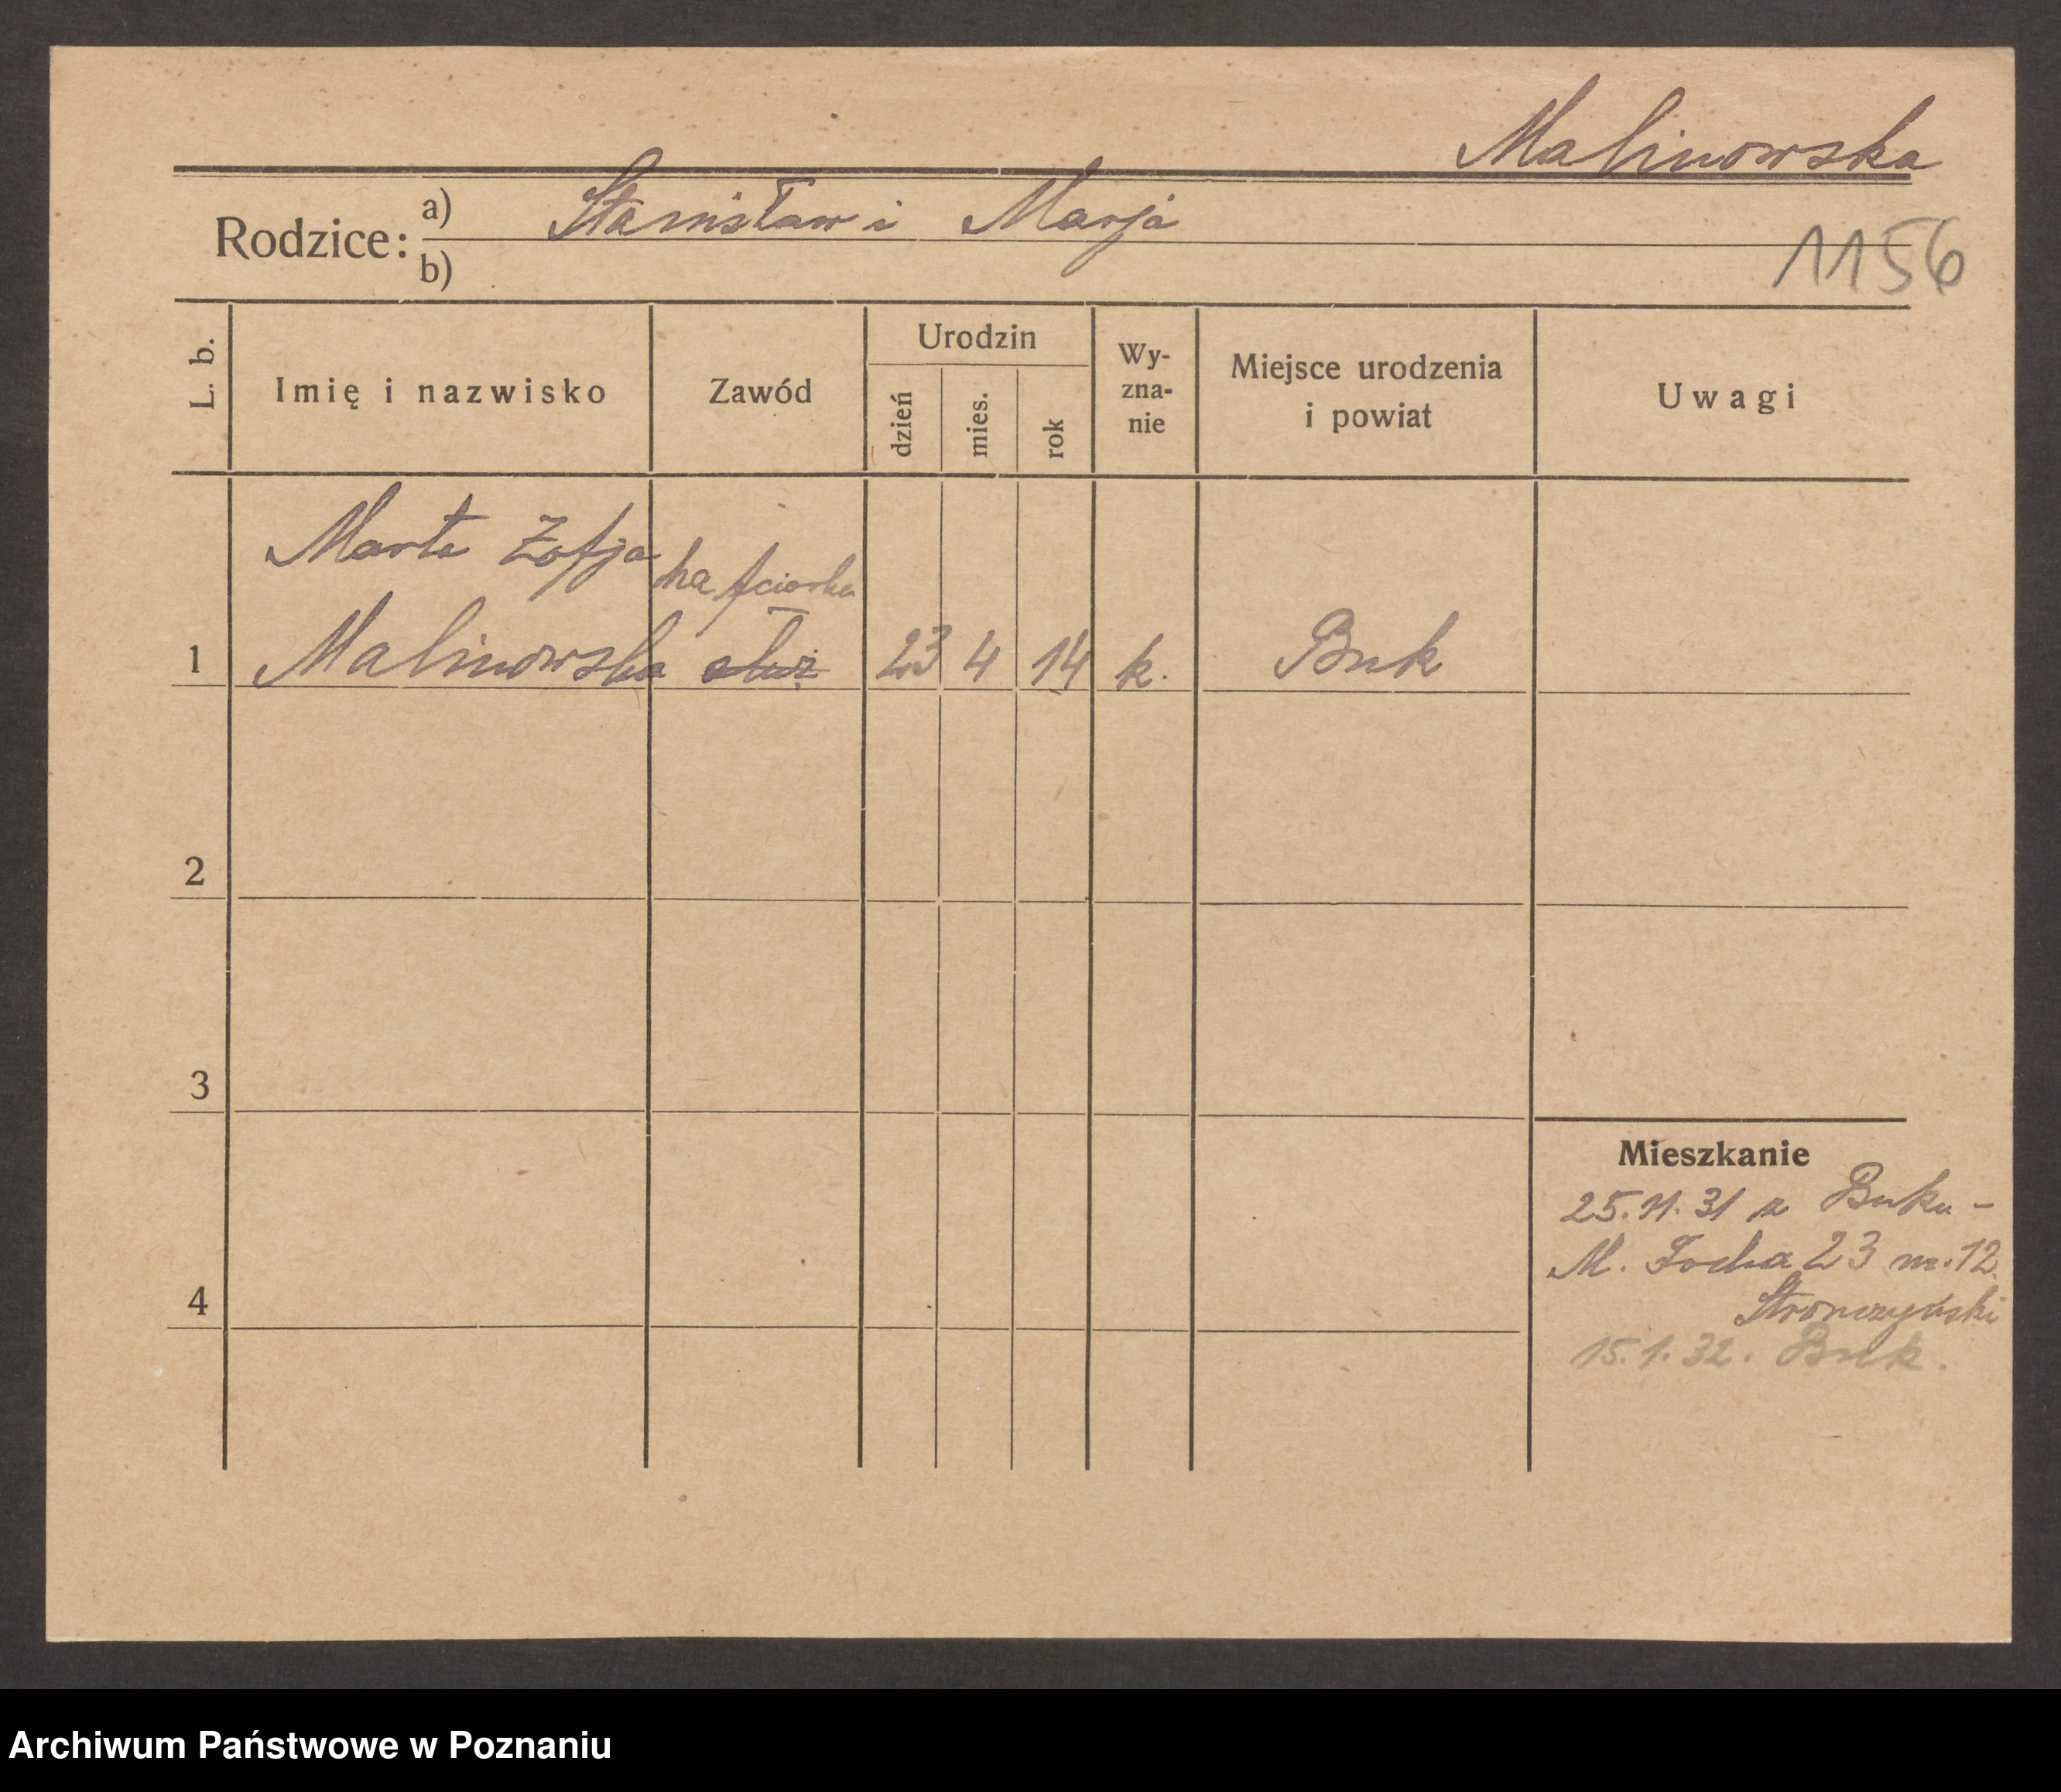 Malinowska
Rodzice: a) Stanisław i Marja
b)
1156
L. b.
Imię i nazwisko
Zawód
Urodzin
dzień
mies.
rok
Wy-
zna-
nie
Miejsce urodzenia
i powiat
Uwagi
Marta Zofja hafciarka
1 Malinowska służ 23 4 14 k. Buk
2
3
4
Mieszkanie
25.11.31 z Buku -
M. Focha 23 m. 12.
Stronczyński
15.1.32. Buk.
Archiwum Państwowe w Poznaniu